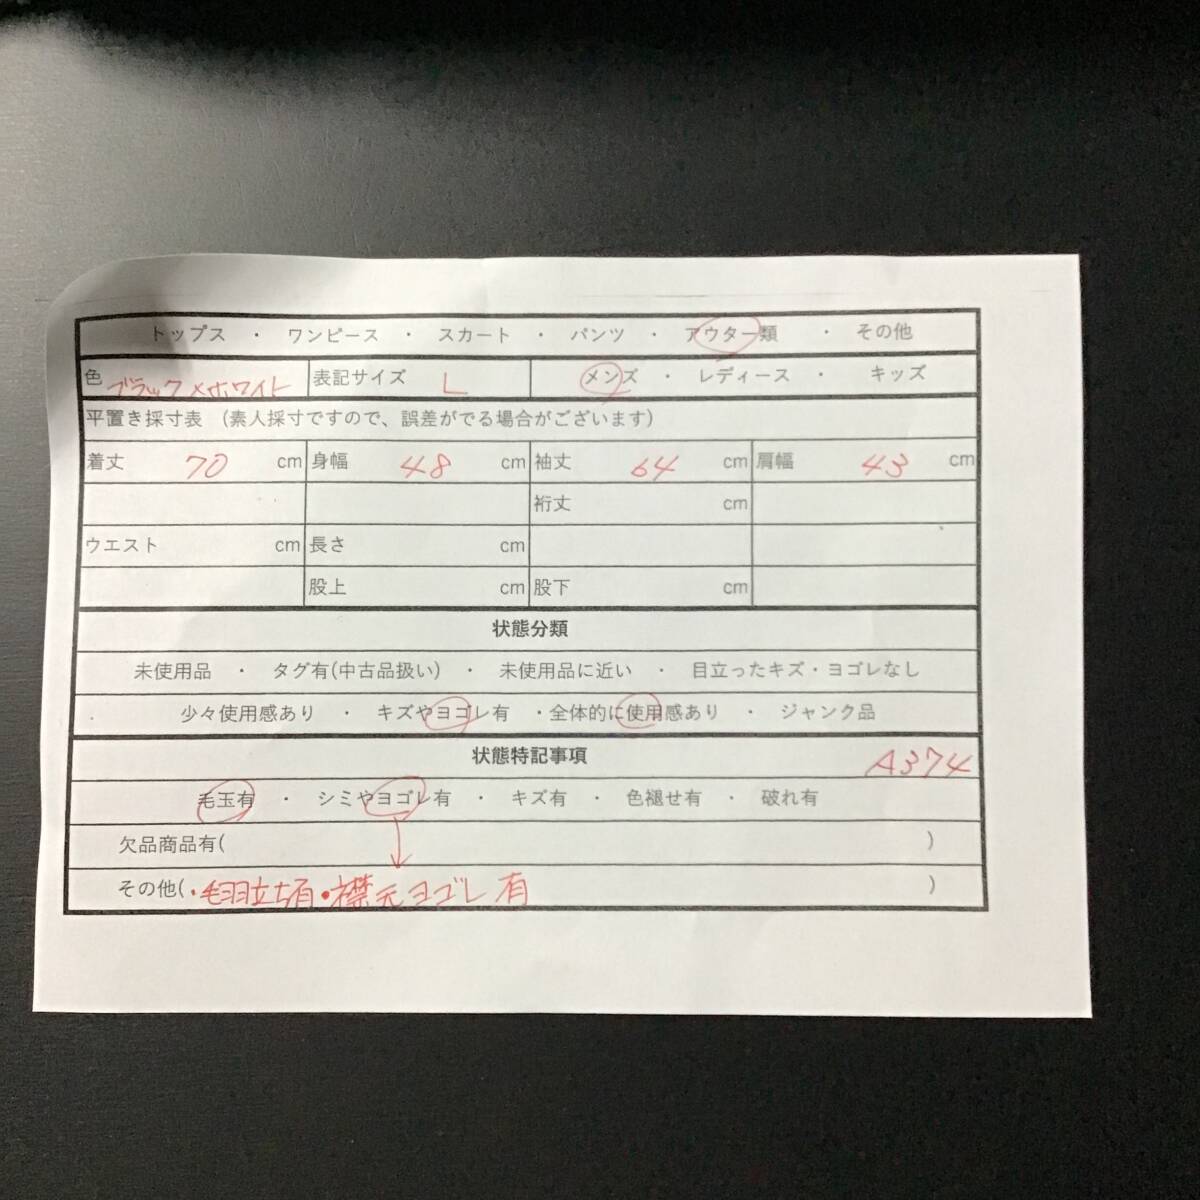 トップス ・ ワンピース ・ スカート ・ パンツ ・ アウター類 ・ その他
色 ブラック×ホワイト 表記サイズ L メンズ ・ レディース ・ キッズ
平置き採寸表 (素人採寸ですので、誤差がでる場合がございます)
着丈 70 cm 身幅 48 cm 袖丈 64 cm 肩幅 43 cm
裄丈 cm
ウエスト cm 長さ cm
股上 cm 股下 cm
状態分類
未使用品 ・ タグ有(中古品扱い) ・ 未使用品に近い ・ 目立ったキズ・ヨゴレなし
少々使用感あり ・ キズやヨゴレ有 ・全体的に使用感あり ・ ジャンク品
状態特記事項 A374
毛玉有 ・ シミやヨゴレ有 ・ キズ有 ・ 色褪せ有 ・ 破れ有
欠品商品有( )
その他(・毛羽立ち有・襟元ヨゴレ有 )